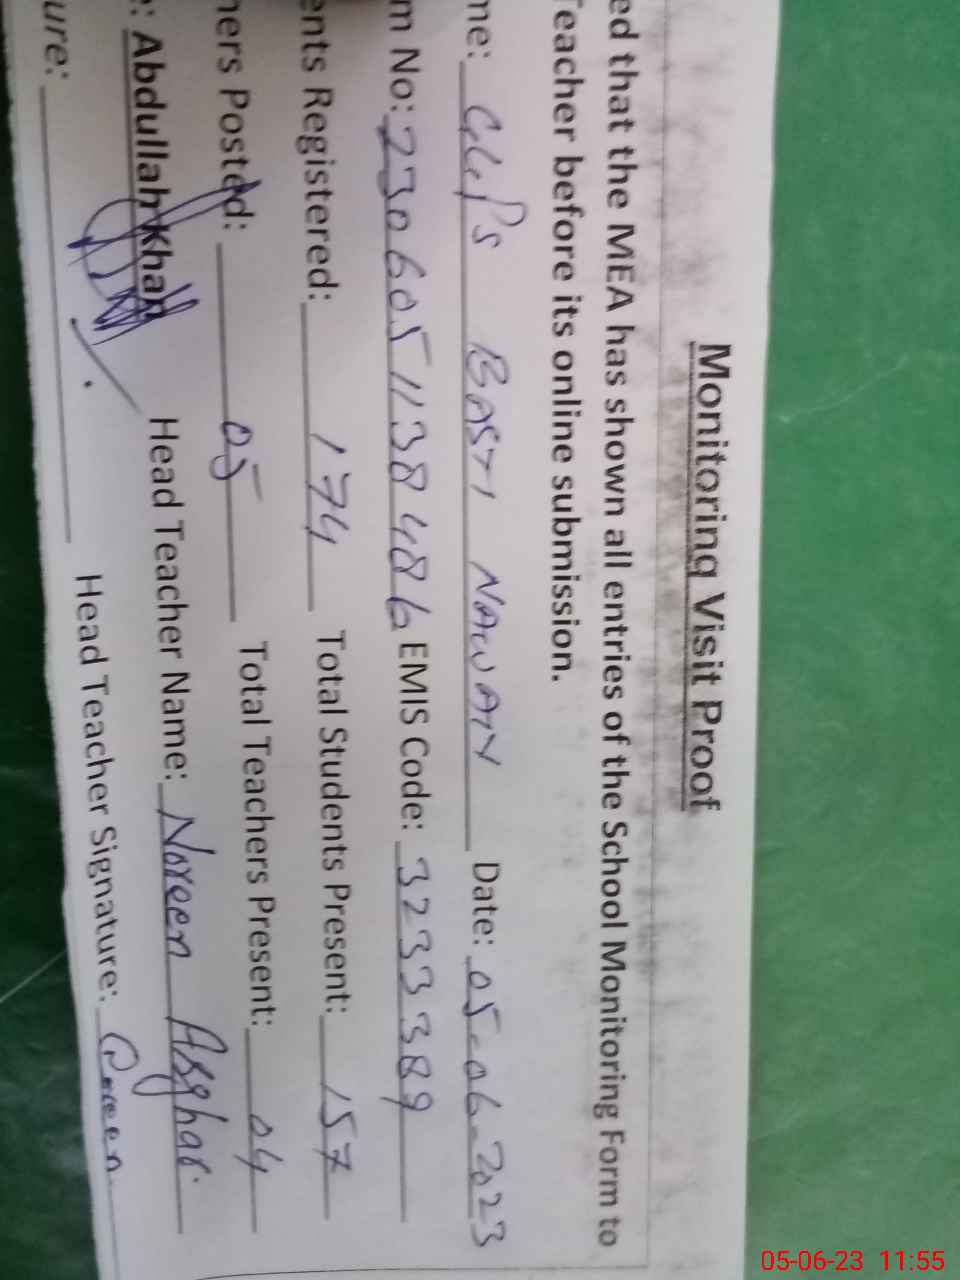 Monitoring Visit Proof
ed that the MEA has shown all entries of the School Monitoring Form to
Teacher before its online submission.
me: GGPS BASTI NAWAN Date: 05-06-2023
m No: 2306051138486 EMIS Code: 32333389
ents Registered: 174 Total Students Present: 157
hers Posted: 05 Total Teachers Present: 04
e: Abdullah Khan Head Teacher Name: Noreen Asghar.
ure: Head Teacher Signature: Noreen
05-06-23 11:55